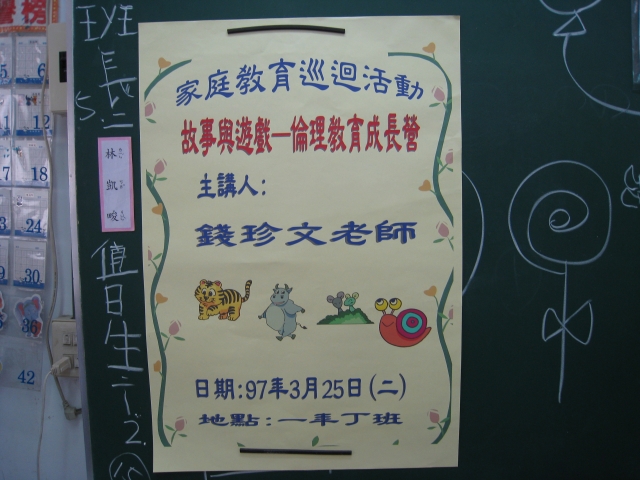 家庭教育巡迴活動
故事與遊戲—倫理教育成長營
主講人:
錢珍文老師
日期:97年3月25日(二)
地點:一年丁班
班長:
5.
林凱畯
值日生:
2.
榜
5 6
11 12
17 18
23 24
29 30
36
42